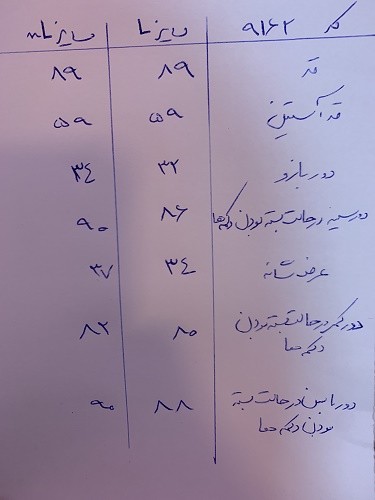 کد ۹۱۶۲ سایز L سایز m
قد ۸۹ ۸۹
قد آستین ۵۹ ۵۹
دور بازو ۳۲ ۳۴
دور سینه در حالت بسته بودن دکمه‌ها ۸۶ ۹۰
عرض شانه ۳۴ ۳۷
دور کمر در حالت بسته بودن ۸۰ ۸۲
دکمه ها
دور باسن در حالت بسته ۸۸ ۹۰
بودن دکمه ها